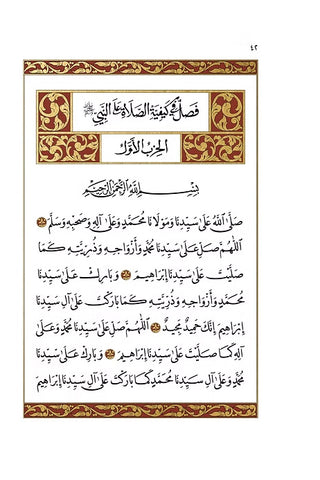 ٤٢
فَصْلٌ فِي كَيْفِيَّةِ الصَّلَاةِ عَلَى النَّبِيِّ ﷺ
الحِزْبُ الأَوَّلُ
بِسْمِ اللَّهِ الرَّحْمَنِ الرَّحِيمِ
صَلَّى اللَّهُ عَلَى سَيِّدِنَا وَمَوْلَانَا مُحَمَّدٍ وَعَلَى آلِهِ وَصَحْبِهِ وَسَلَّمَ
اللَّهُمَّ صَلِّ عَلَى سَيِّدِنَا مُحَمَّدٍ وَأَزْوَاجِهِ وَذُرِّيَّتِهِ كَمَا
صَلَّيْتَ عَلَى سَيِّدِنَا إِبْرَاهِيمَ وَبَارِكْ عَلَى سَيِّدِنَا
مُحَمَّدٍ وَأَزْوَاجِهِ وَذُرِّيَّتِهِ كَمَا بَارَكْتَ عَلَى آلِ سَيِّدِنَا
إِبْرَاهِيمَ إِنَّكَ حَمِيدٌ مَجِيدٌ اللَّهُمَّ صَلِّ عَلَى سَيِّدِنَا مُحَمَّدٍ وَعَلَى
آلِهِ كَمَا صَلَّيْتَ عَلَى سَيِّدِنَا إِبْرَاهِيمَ وَبَارِكْ عَلَى سَيِّدِنَا
مُحَمَّدٍ وَعَلَى آلِ سَيِّدِنَا مُحَمَّدٍ كَمَا بَارَكْتَ عَلَى آلِ سَيِّدِنَا إِبْرَاهِيمَ